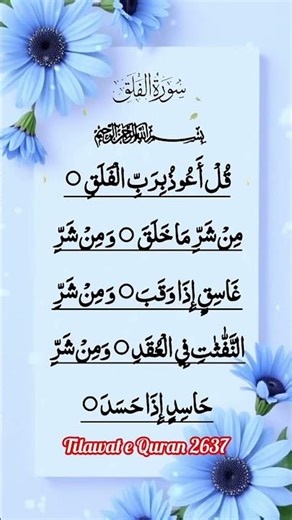 سورة الفلق
بسم الله الرحمن الرحيم
قُلْ أَعُوذُ بِرَبِّ الْفَلَقِ ○
مِنْ شَرِّ مَا خَلَقَ ○ وَمِنْ شَرِّ
غَاسِقٍ إِذَا وَقَبَ ○ وَمِنْ شَرِّ
النَّفّٰثٰتِ فِي الْعُقَدِ ○ وَمِنْ شَرِّ
حَاسِدٍ إِذَا حَسَدَ ○
Tilawat e Quran 2637